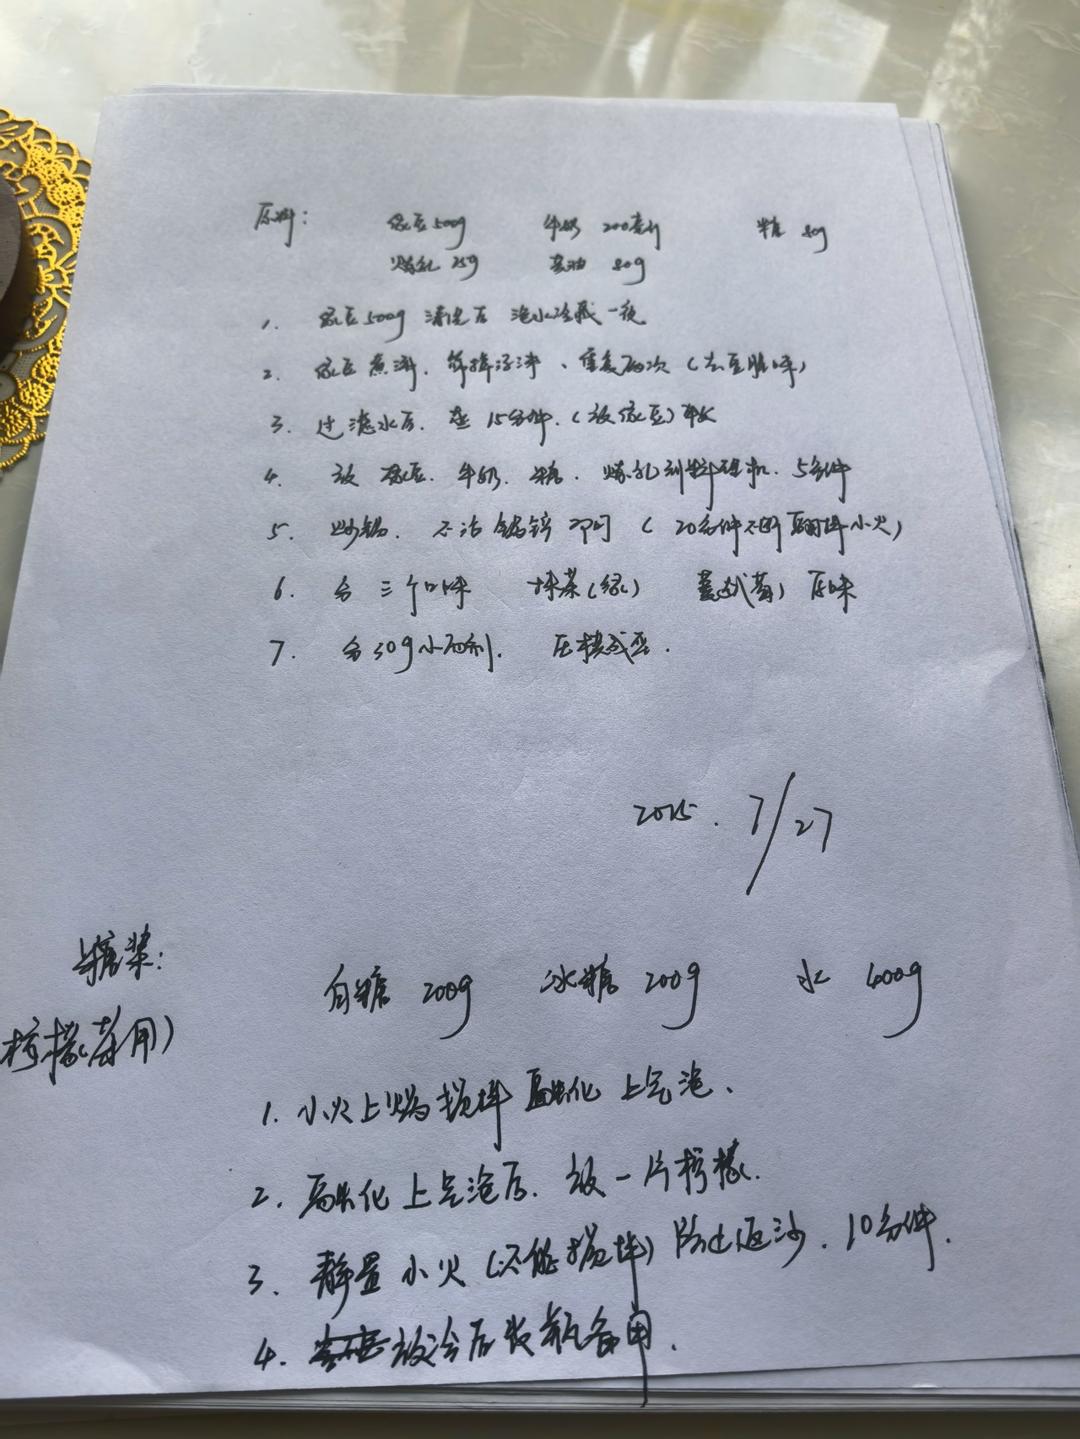 原料: 绿豆500g 牛奶 200毫升 糖 80g
炼乳 25g 黄油 80g
1. 绿豆500g 清洗后 泡水冷藏一夜
2. 绿豆煮沸. 解掉浮沫、重复两次 (去豆腥味)
3. 过滤水后. 蒸 15分钟. (放绿豆)
4. 放 绿豆. 牛奶. 糖. 炼乳 5分钟
5. 炒锅. 不沾锅锌即可 ( 20分钟不断翻拌小火)
6. 分三个口味 抹茶(绿) 原味
7. 分30g小面剂. 压模成型.
2025. 7/27
糖浆:
柠檬(茶用)
白糖 200g 冰糖 200g 水 400g
1. 小火上锅搅拌融化上气泡、
2. 融化上气泡后. 放一片柠檬.
3. 静置小火(不能搅拌)防止返沙. 10分钟.
4. 放冷后装瓶备用.